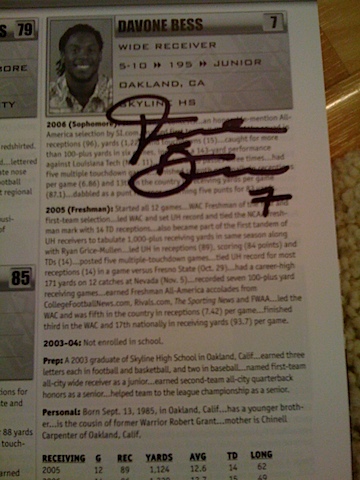 S 79
DAVONE BESS 7
WIDE RECEIVER
MORE
5-10 195 JUNIOR
OAKLAND, CA
TY
SKYLINE HS
2006 (Sophomore)
America selection by SI.com
redshirted.
receptions (96), yards (1,
(15)...caught for more
than 100-yards in six
143-yard performance
...lettered
against Louisiana Tech
had
ate nose
five multiple touchdown
football
per game (6.86) and
the country
yards per game
t regional
(87.1)...dabbled as a punt
five punts for
7
2005 (Freshman): Started all 12 games...WAC Freshman of the
first-team selection...led WAC and set UH record and tied the NCAA fresh-
man mark with 14 TD receptions...also became part of the first tandem of
UH receivers to tabulate 1,000-plus receiving yards in same season along
with Ryan Grice-Mullen...led UH in receptions (89), scoring (84 points) and
TDs (14)...posted five multiple-touchdown games...tied UH record for most
85
receptions (14) in a game versus Fresno State (Oct. 29)...had a career-high
171 yards on 12 catches at Nevada (Nov. 5)...recorded seven 100-plus yard
receiving games...earned Freshman All-America accolades from
CollegeFootballNews.com, Rivals.com, The Sporting News and FWAA...led the
WAC and was fifth in the country in receptions (7.42) per game...finished
third in the WAC and 17th nationally in receiving yards (93.7) per game.
2003-04: Not enrolled in school.
Prep: A 2003 graduate of Skyline High School in Oakland, Calif...earned three
letters each in football and basketball, and two in baseball...named first-team
all-city wide receiver as a junior...earned second-team all-city quarterback
ons for
honors as a senior...helped team to the league championship as a senior.
te and
Personal: Born Sept. 13, 1985, in Oakland, Calif...has a younger broth-
88 yards
er...is the cousin of former Warrior Robert Grant...mother is Chinell
touch-
Carpenter of Oakland, Calif.
RECEIVING G REC YARDS AVG TD LONG
arned
2005 12 89 1,124 12.6 14 62